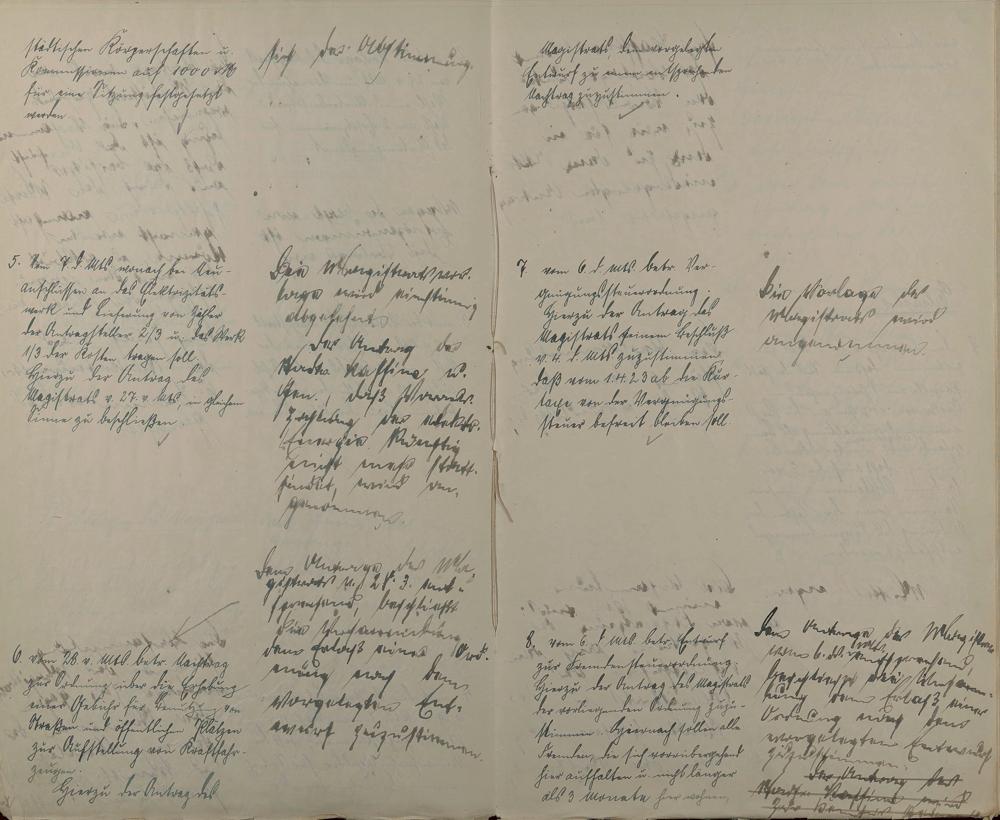 städtischen Körperschaften u.
Kommissionen auf 1000 M
für eine Sitzung festgesetzt
werden
sich der Abstimmung.
5. Vom 7. d. Mts wonach bei Neu-
anschlüssen an das Elektrizitäts-
werk und Lieferung von Zähler
der Antragsteller 2/3 u. das Werk
1/3 der Kosten tragen soll.
Hierzu der Antrag des
Magistrats v. 27. v. Mts, in gleichem
Sinne zu beschließen.
Die Magistratsvor-
lage wird einstimmig
abgelehnt.
Der Antrag des
u.
Gen., daß Voraus-
zahlung der elektr.
Energie künftig
nicht mehr statt-
findet, wird an-
genommen.
6. vom 28 v. Mts betr. Nachtrag
zur Ordnung über die Erhebung
einer Gebühr für Benutzung von
Straßen und öffentlichen Plätzen
zur Aufstellung von Kraftfahr-
zeugen.
Hierzu der Antrag des
Dem Antrage des Ma-
gistrats v. 28. 3. ent-
sprechend, beschließt
die Versammlung
dem Erlaß einer Ord-
nung nach dem
vorgelegten Ent-
wurf zuzustimmen.
Magistrats dem vorgelegten
Entwurf zu einem entsprechenden
Nachtrag zuzustimmen.
7. vom 6. d. Mts betr. Ver-
gnügungssteuerordnung.
Hierzu der Antrag des
Magistrats seinem Beschluß
v. 4. d. Mts zuzustimmen
daß vom 1.4.23 ab die Kur-
taxe von der Vergnügungs-
steuer befreit bleiben soll.
Die Vorlage des
Magistrats wird
angenommen.
8. vom 6. d. Mts. betr. Entwurf
zur Fremdensteuerordnung.
Hierzu der Antrag des Magistrats
der vorliegenden Ordnung zuzu-
stimmen. Hiernach sollen alle
Fremden, die sich vorübergehend
hier aufhalten u. nicht länger
als 3 Monate hier wohnen,
Dem Antrage des Magistrats
vom 6. d. Mts entsprechend,
beschließt die Versamm-
lung dem Erlaß einer
Ordnung nach dem
vorgelegten Entwurf
zuzustimmen.
Der Antrag des
wird